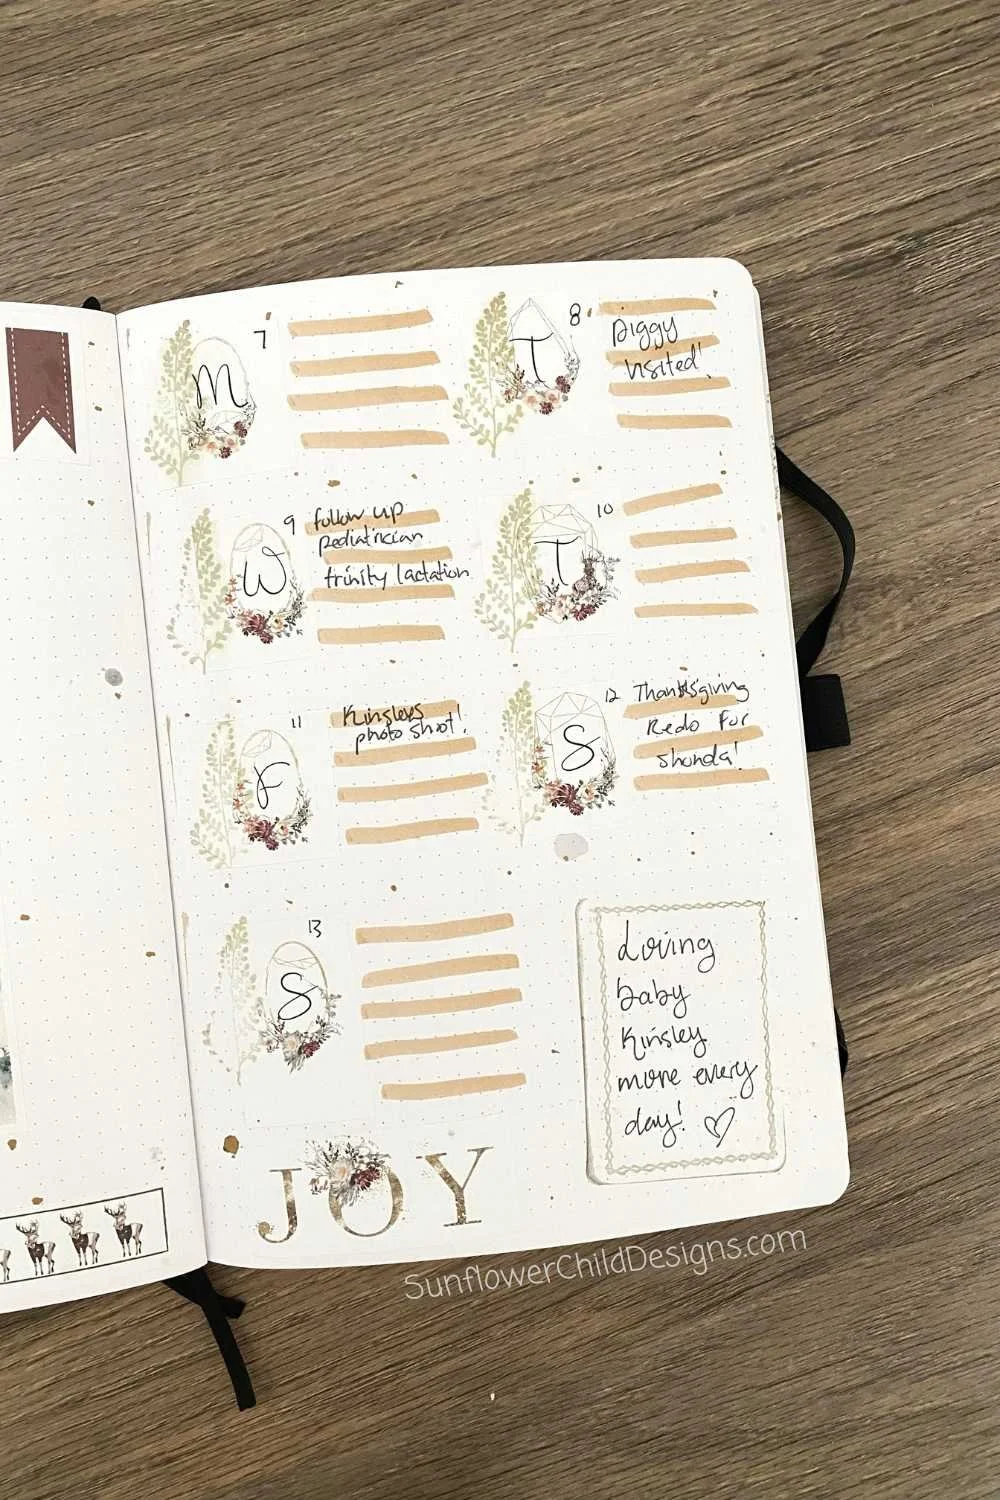 M
7
T
8
Piggy
visited!
W
9
follow up
pediatrician
trinity lactation
T
10
F
11
Kinsleys
photo shoot!
S
12
Thanksgiving
Redo for
Shonda!
S
13
Loving
baby
Kinsley
more every
day!
JOY
SunflowerChildDesigns.com